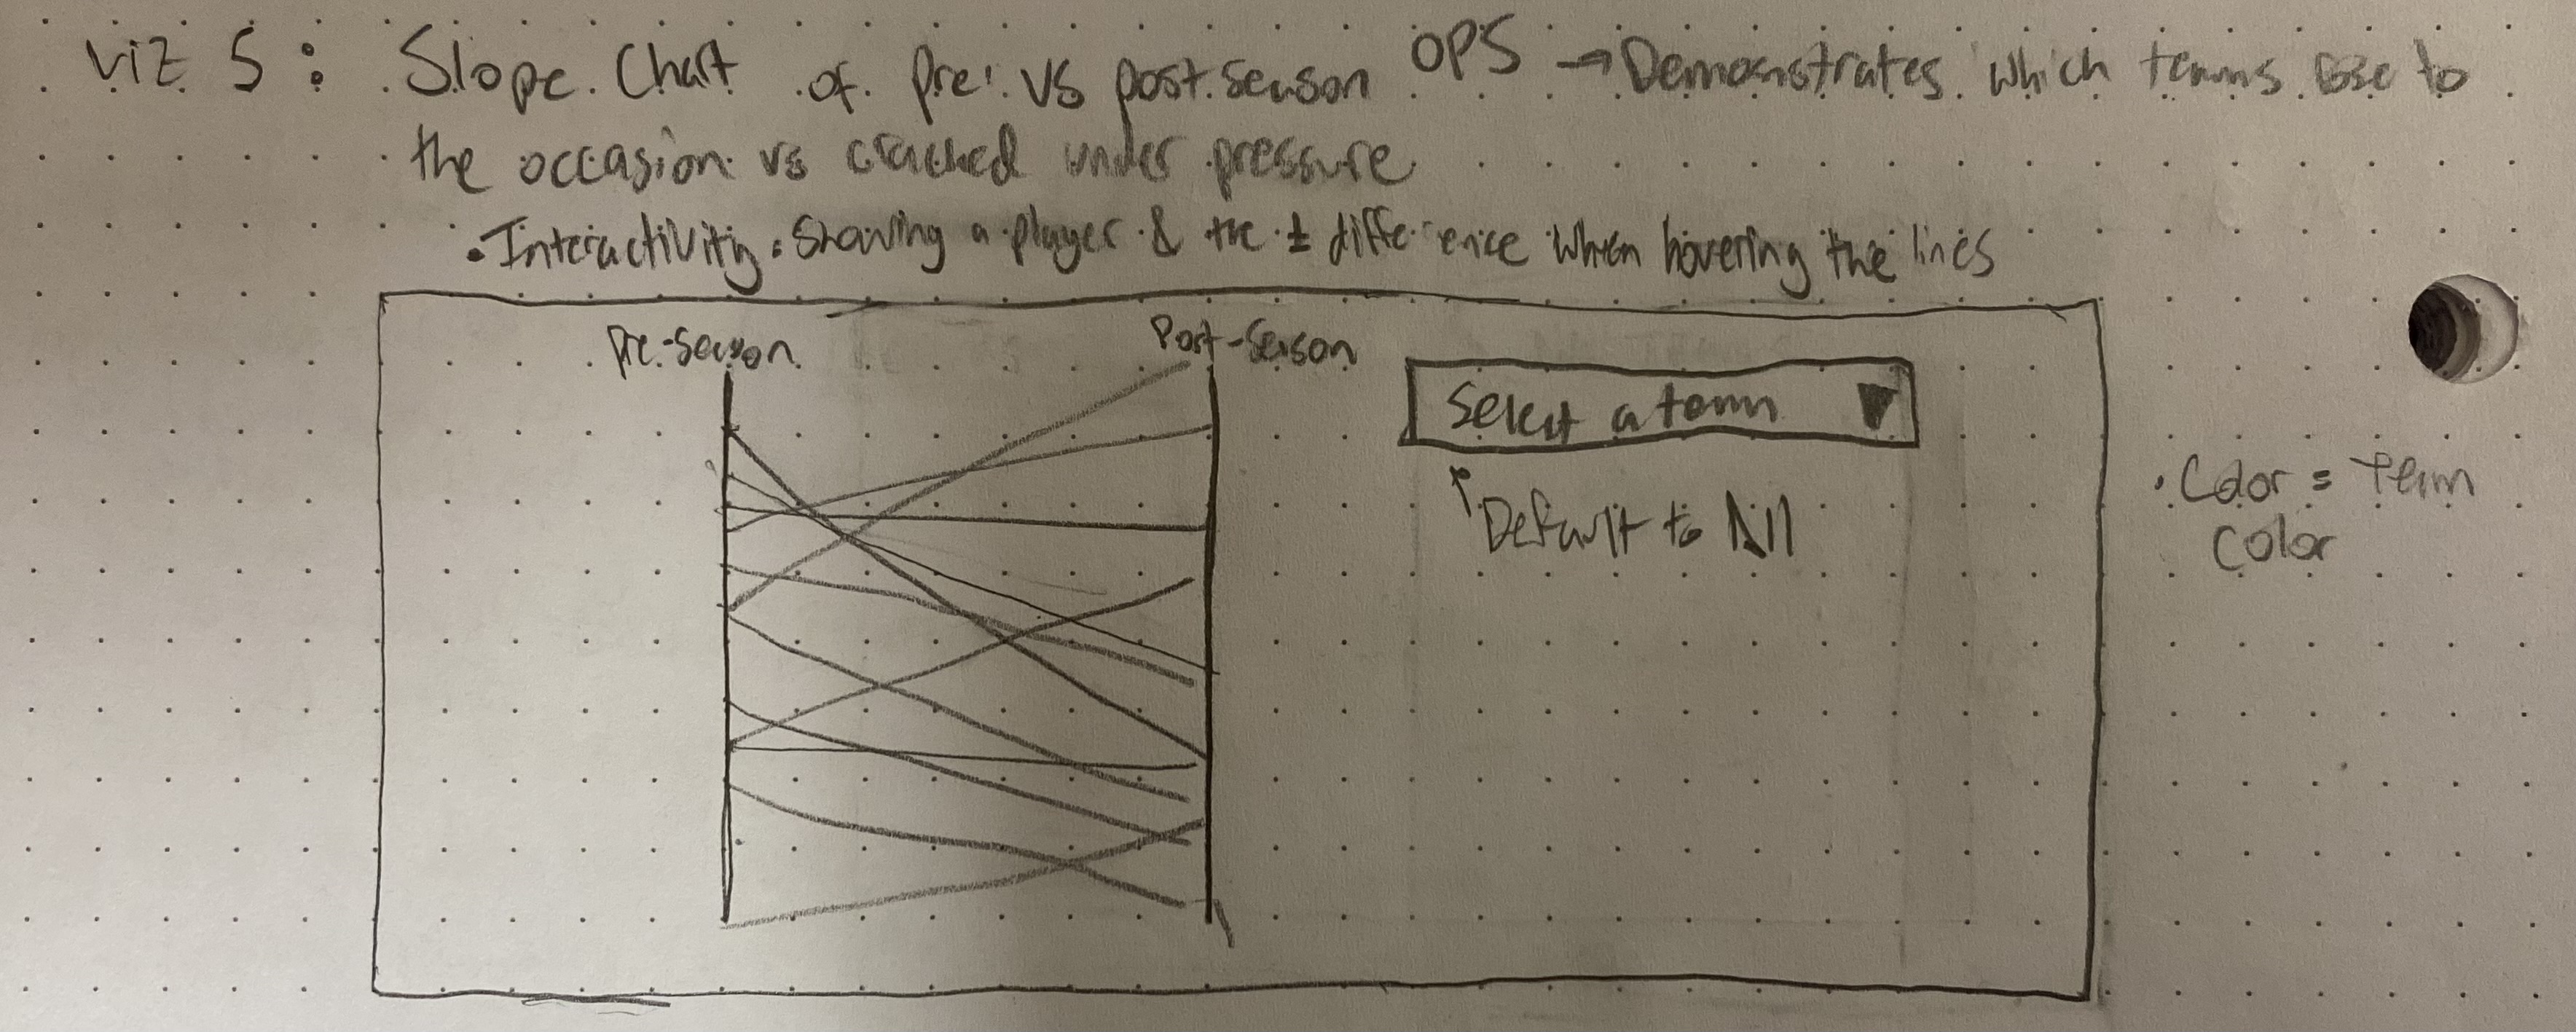 Viz 5: Slope Chart of Pre vs post season OPS → Demonstrates which teams rose to
the occasion vs cracked under pressure
• Interactivity: Showing a player & the ± difference when hovering the lines
Pre-Season
Post-Season
Select a team ▼
↑ Default to All
• Color = Team
Color